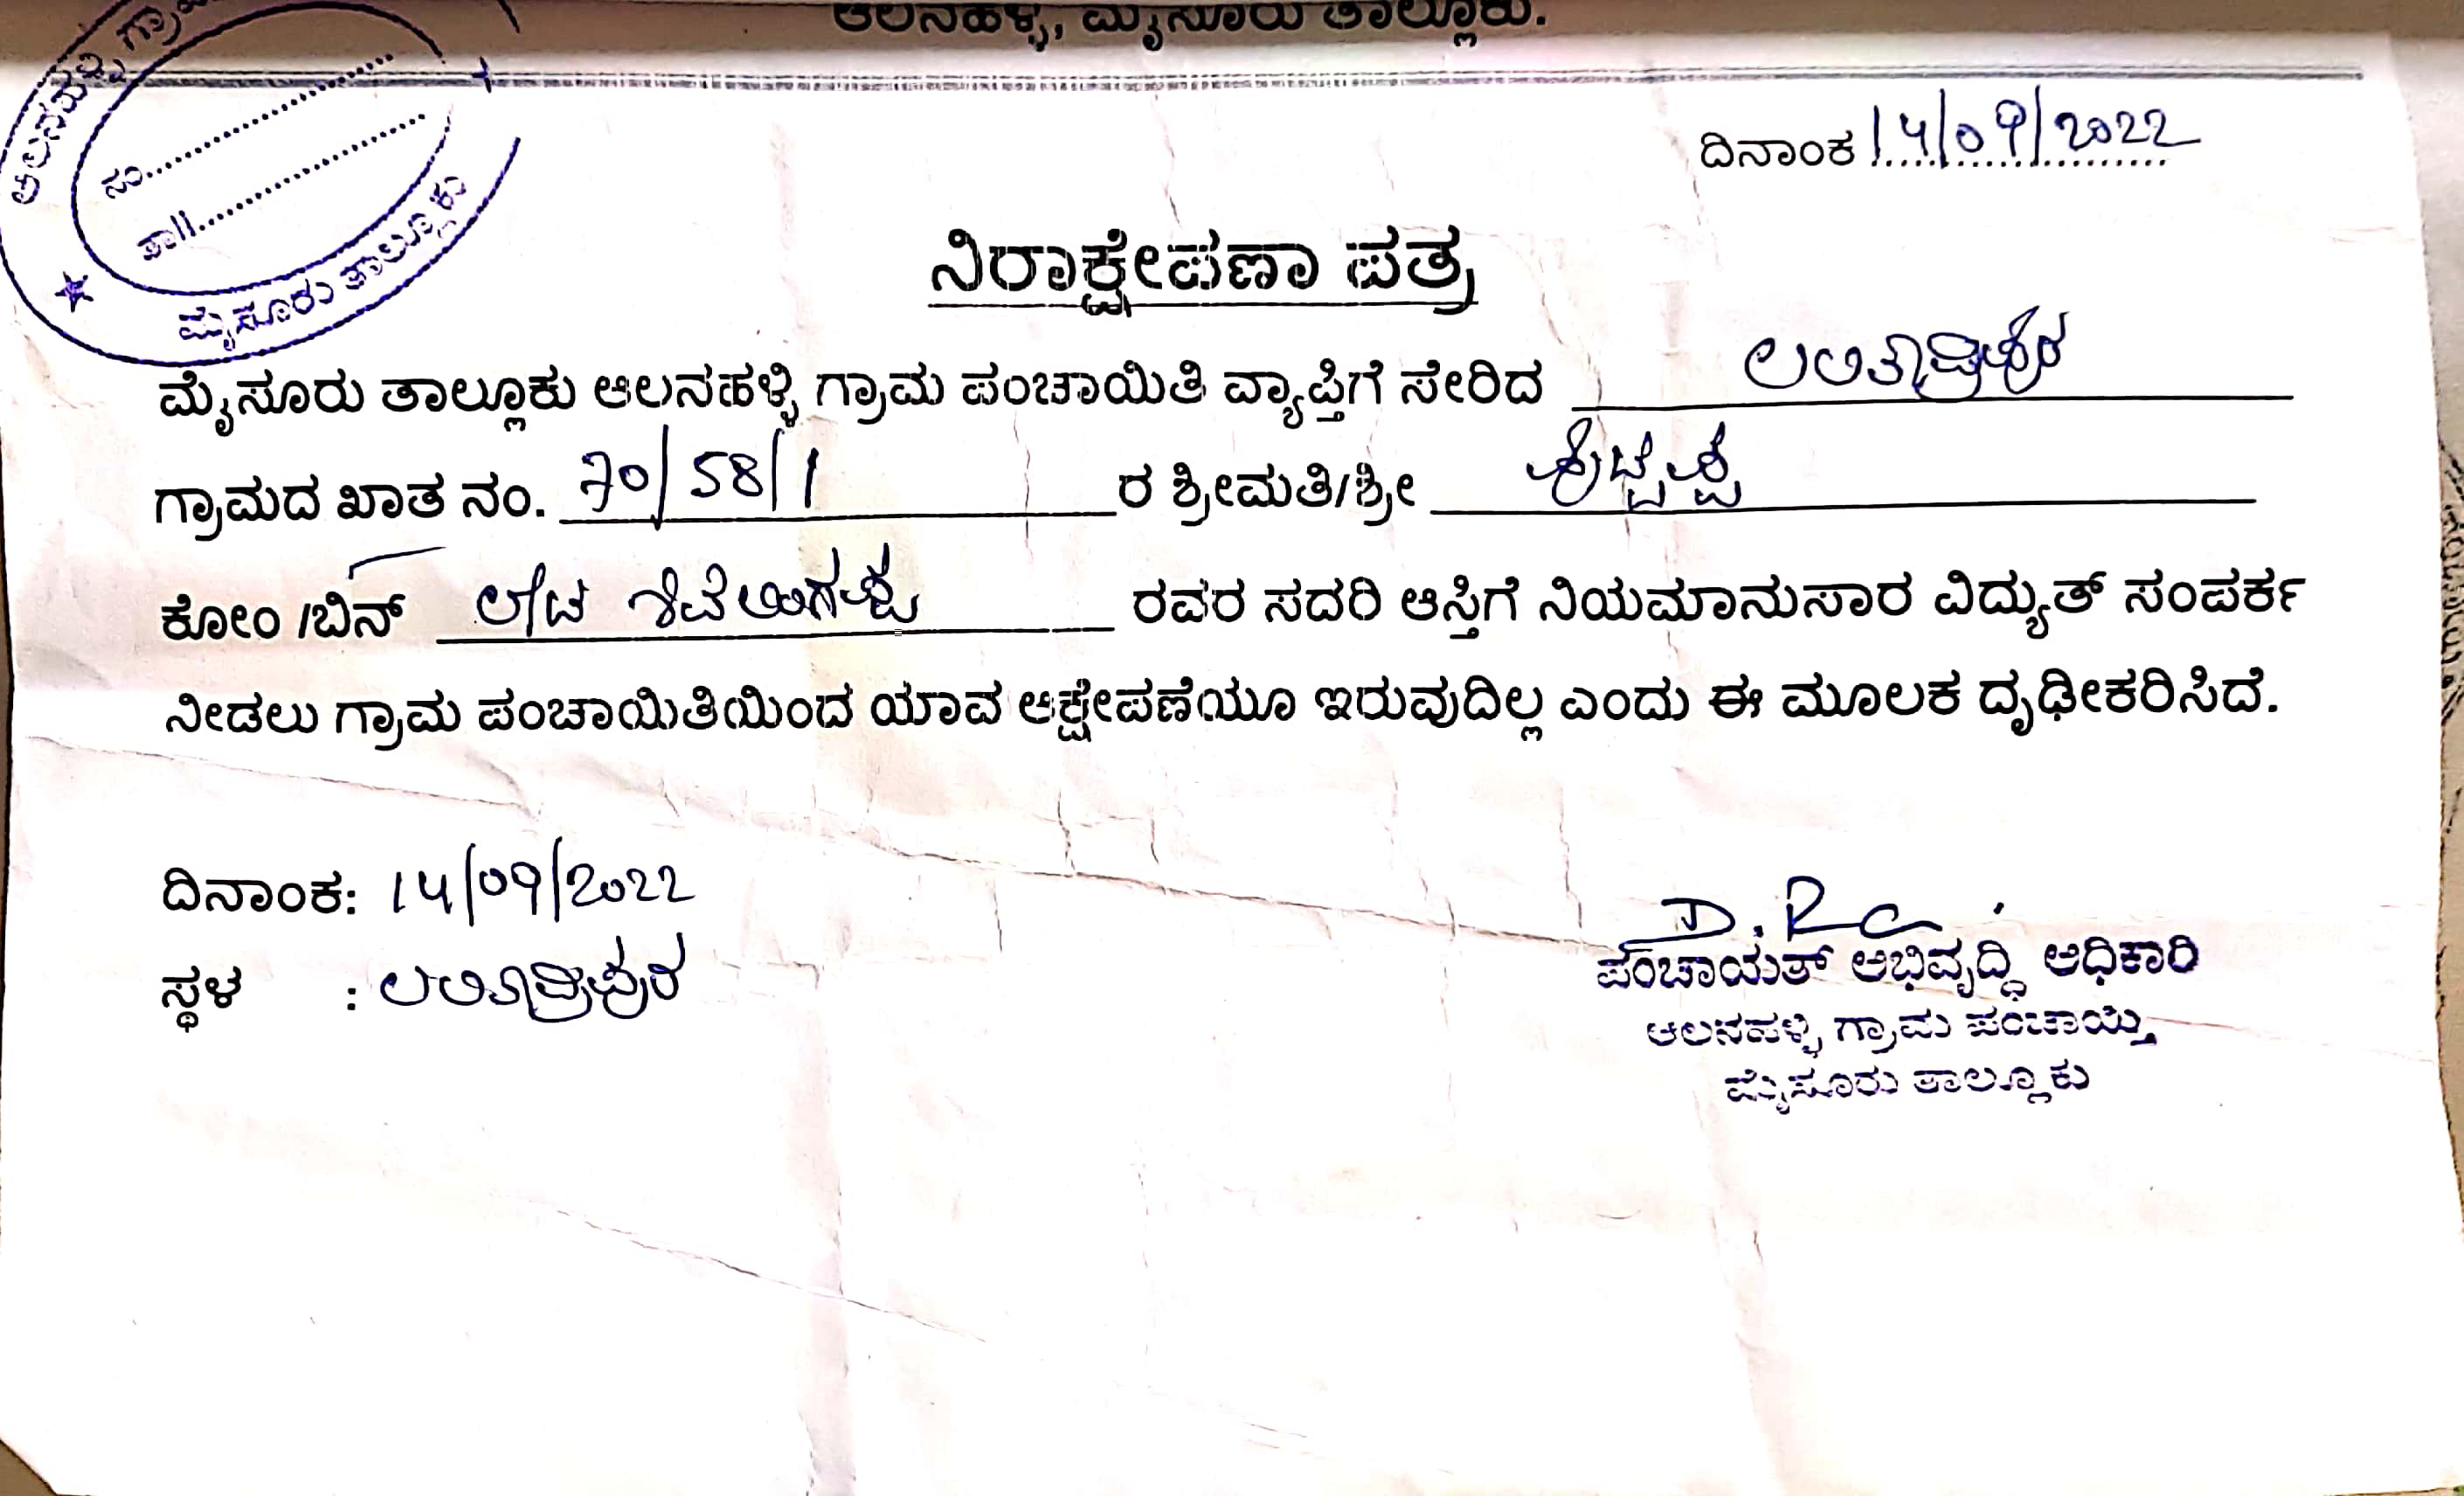 ಆಲನಹಳ್ಳಿ, ಮೈಸೂರು ತಾಲ್ಲೂಕು.
ಆಲನಹಳ್ಳಿ ಗ್ರಾ
ಸಂ..............................
ತಾ||..............................
ಮೈಸೂರು ತಾಲ್ಲೂಕು
ದಿನಾಂಕ 14/09/2022
ನಿರಾಕ್ಷೇಪಣಾ ಪತ್ರ
ಮೈಸೂರು ತಾಲ್ಲೂಕು ಆಲನಹಳ್ಳಿ ಗ್ರಾಮ ಪಂಚಾಯಿತಿ ವ್ಯಾಪ್ತಿಗೆ ಸೇರಿದ ಲಲಿತಾದ್ರಿಪುರ
ಗ್ರಾಮದ ಖಾತ ನಂ. 70/58/1 ರ ಶ್ರೀಮತಿ/ಶ್ರೀ ಪುಟ್ಟಪ್ಪ
ಕೋಂ /ಬಿನ್ ಲೇಟ ಶಿವಲಿಂಗಪ್ಪ ರವರ ಸದರಿ ಆಸ್ತಿಗೆ ನಿಯಮಾನುಸಾರ ವಿದ್ಯುತ್ ಸಂಪರ್ಕ
ನೀಡಲು ಗ್ರಾಮ ಪಂಚಾಯಿತಿಯಿಂದ ಯಾವ ಆಕ್ಷೇಪಣೆಯೂ ಇರುವುದಿಲ್ಲ ಎಂದು ಈ ಮೂಲಕ ದೃಢೀಕರಿಸಿದೆ.
ದಿನಾಂಕ: 14/09/2022
ಸ್ಥಳ : ಲಲಿತಾದ್ರಿಪುರ
ಪಂಚಾಯತ್ ಅಭಿವೃದ್ಧಿ ಅಧಿಕಾರಿ
ಆಲನಹಳ್ಳಿ ಗ್ರಾಮ ಪಂಚಾಯ್ತಿ
ಮೈಸೂರು ತಾಲ್ಲೂಕು